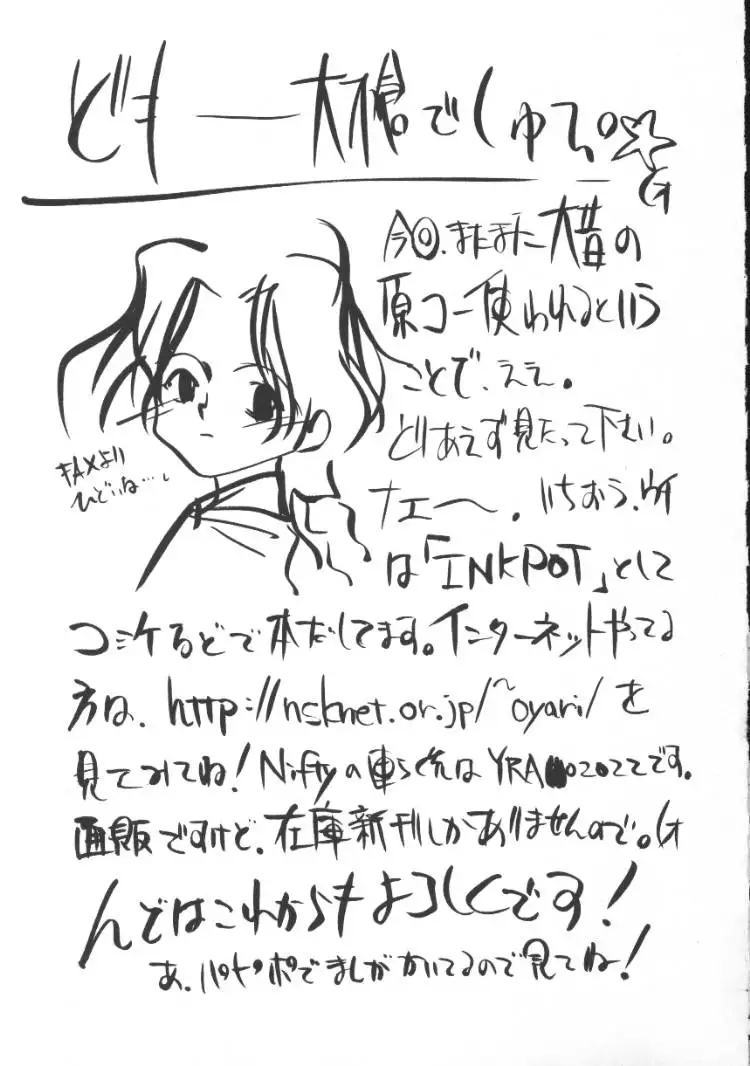 どもー大槍でしゅて。☆
今回、またまた大昔の
原コー使われるという
ことで、ええ。
とりあえず見たって下さい。
FAXより
ひどいね…。
ナエ〜。いちおう、ウチ
は「INKPOT」として
コミケなどで本だしてます。インターネットやってる
方は、http://nsknet.or.jp/~oyari/を
見てみてね！Niftyの連らく先はYRA02022です。
通販ですけど、在庫新刊しかありませんので。(オ
んではこれからもよろしくです！
あ、パトポポでましがかいてるので見てね！